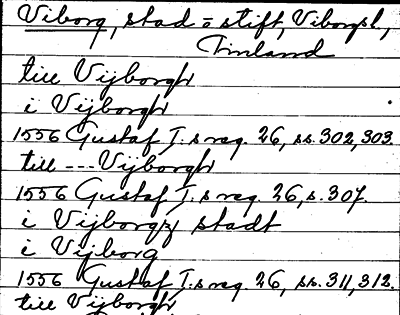 Viborg, stad = stift, Viborgs l.,
Finland
till Vijborgh
i Vijborgh
1556 Gustaf I.s reg. 26, ss. 302, 303.
till --- Vijborgh
1556 Gustaf I.s reg. 26, s. 307.
i Vijborgz stadt
i Vijborg
1556 Gustaf I.s reg. 26, ss. 311, 312.
till Vijborgh